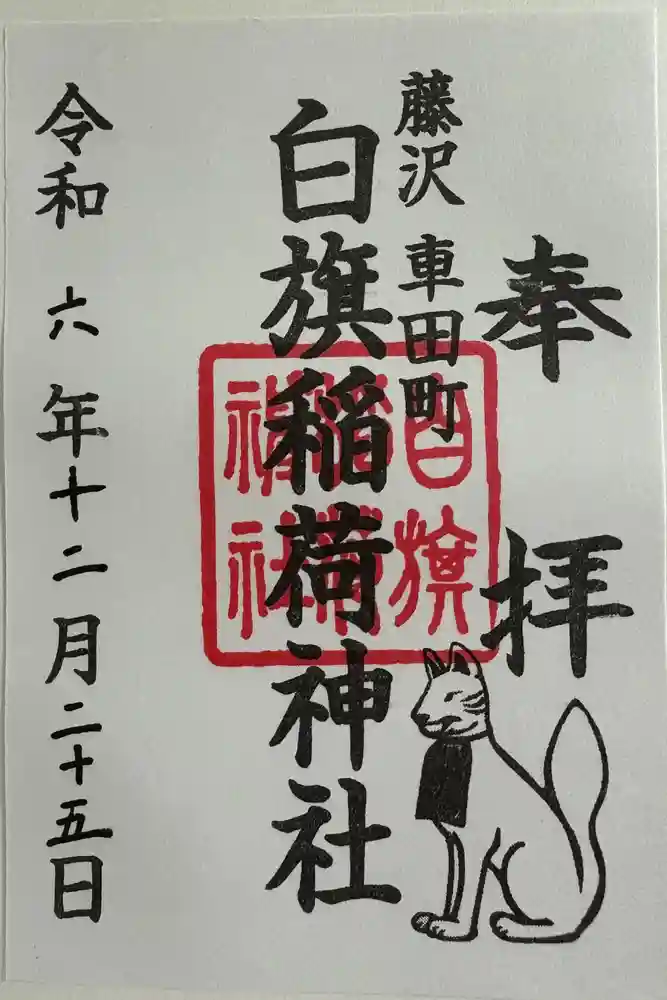 奉拝
藤沢 車田町
白旗稲荷神社
白旗
稲荷
神社
令和 六年十二月二十五日